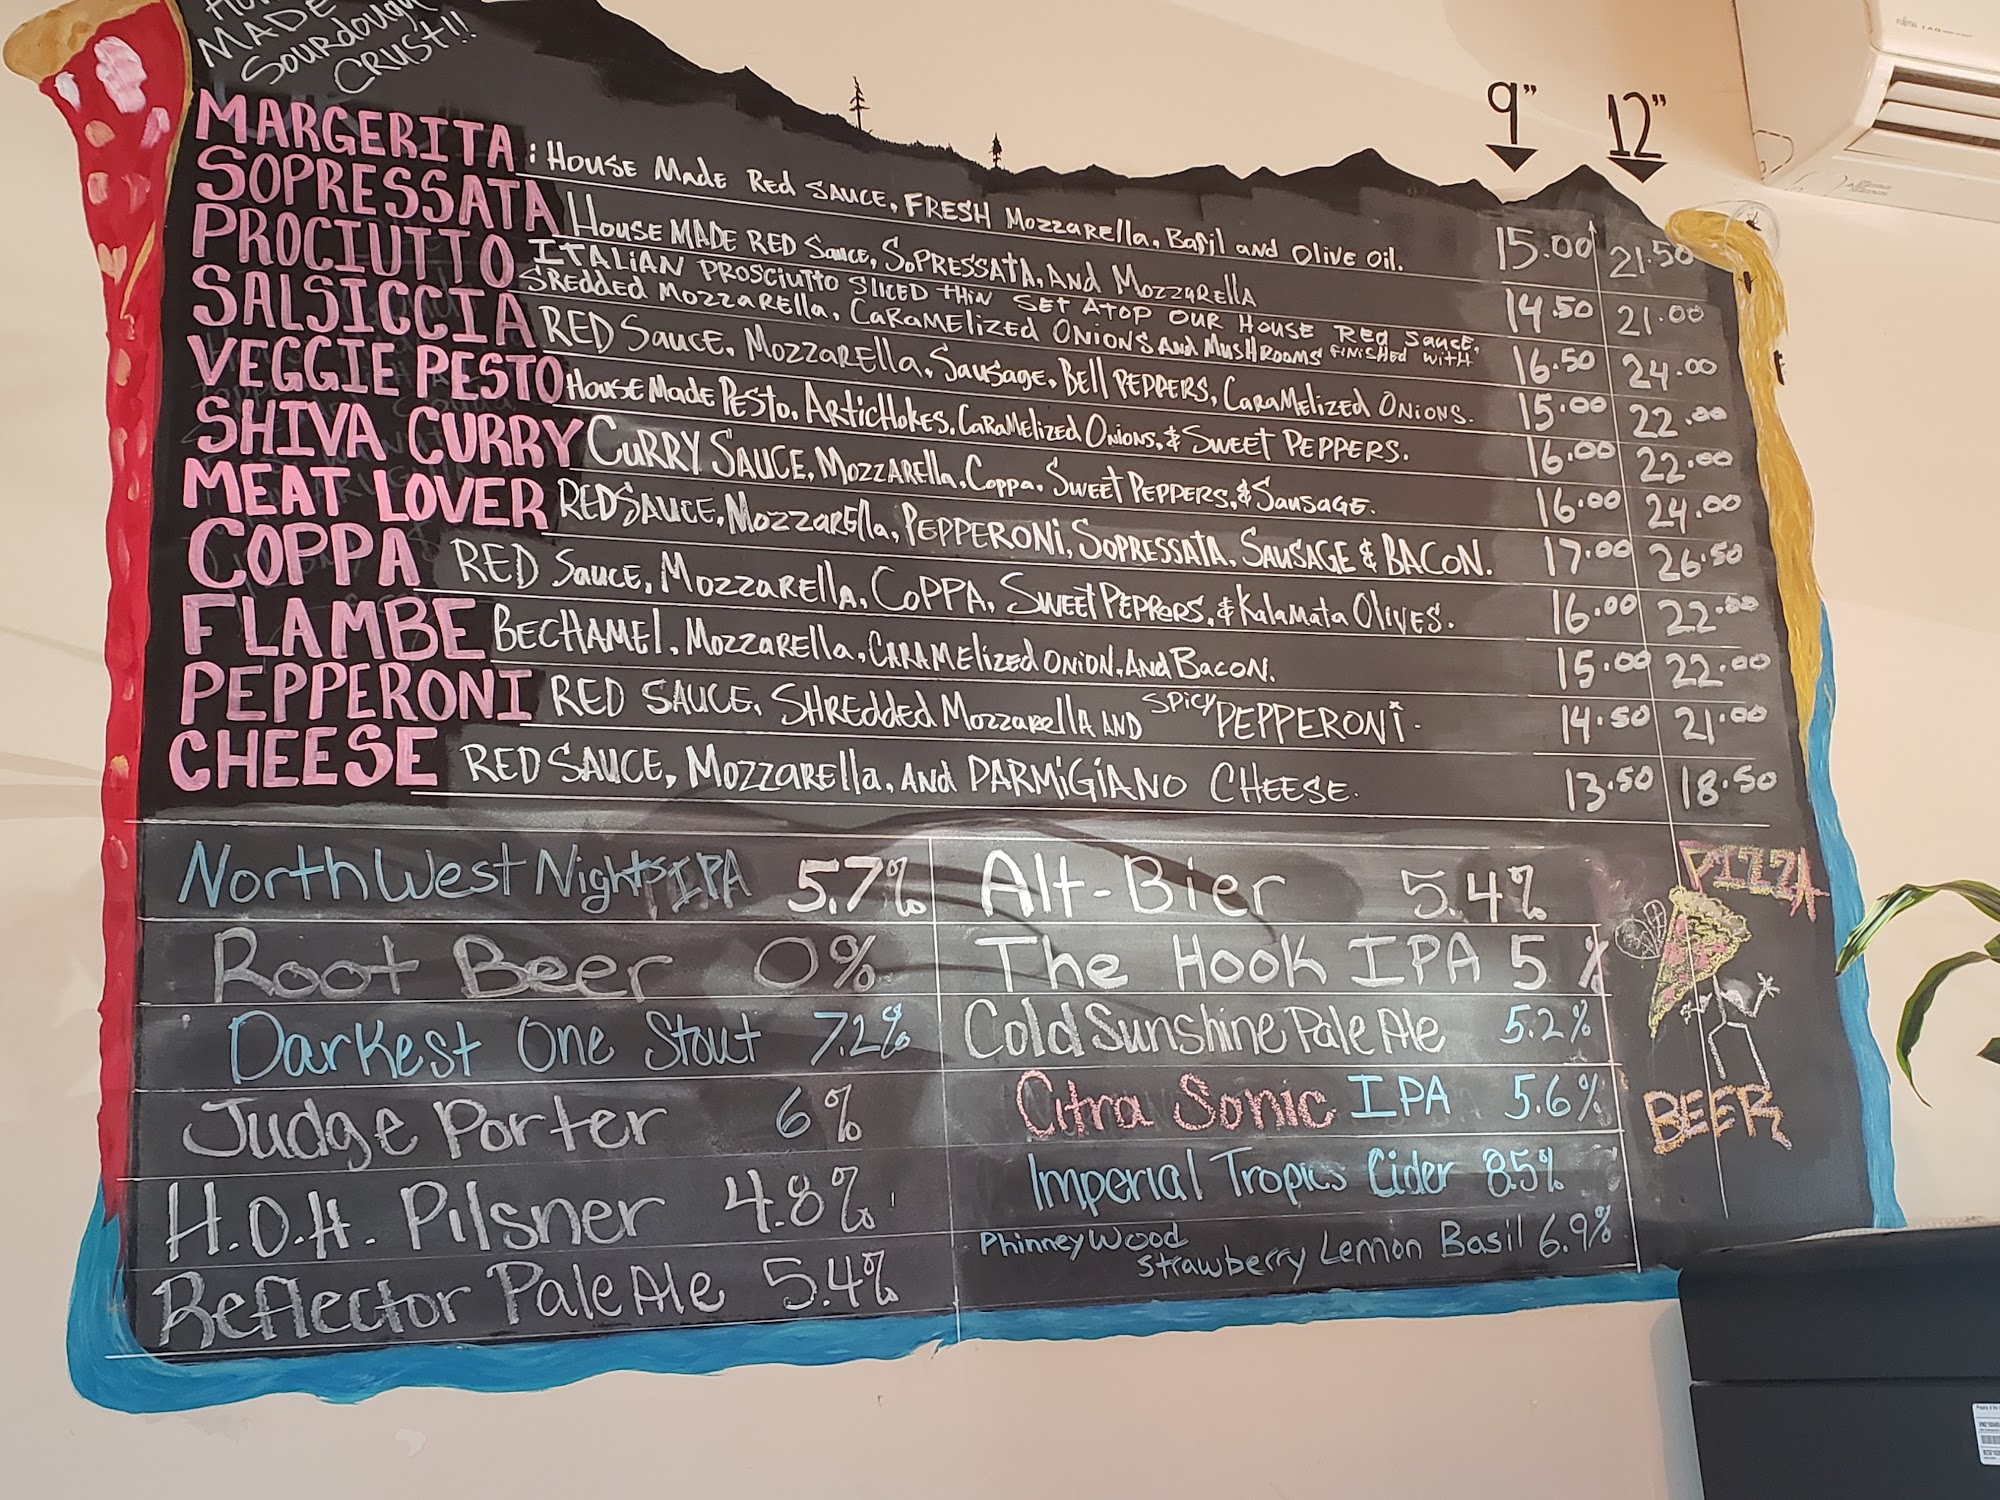 MADE
Sourdough
CRUST!!
9" 12"
MARGERITA : HOUSE MADE RED SAUCE, FRESH MOZZARELLA, BASIL AND OLIVE OIL. 15.00 21.50
SOPRESSATA HOUSE MADE RED SAUCE, SOPRESSATA, AND MOZZARELLA 14.50 21.00
PROCIUTTO ITALIAN PROSCIUTTO SLICED THIN SET ATOP OUR HOUSE RED SAUCE,
SREDDED MOZZARELLA, CARAMELIZED ONIONS AND MUSHROOMS FINISHED WITH 16.50 24.00
SALSICCIA RED SAUCE, MOZZARELLA, SAUSAGE, BELL PEPPERS, CARAMELIZED ONIONS. 15.00 22.00
VEGGIE PESTO HOUSE MADE PESTO, ARTICHOKES, CARAMELIZED ONIONS, & SWEET PEPPERS. 16.00 22.00
SHIVA CURRY CURRY SAUCE, MOZZARELLA, COPPA, SWEET PEPPERS, & SAUSAGE. 16.00 24.00
MEAT LOVER RED SAUCE, MOZZARELLA, PEPPERONI, SOPRESSATA, SAUSAGE & BACON. 17.00 26.50
COPPA RED SAUCE, MOZZARELLA, COPPA, SWEET PEPPERS, & KALAMATA OLIVES. 16.00 22.00
FLAMBE BECHAMEL, MOZZARELLA, CARAMELIZED ONION, AND BACON. 15.00 22.00
PEPPERONI RED SAUCE, SHREDDED MOZZARELLA AND SPICY PEPPERONI. 14.50 21.00
CHEESE RED SAUCE, MOZZARELLA, AND PARMIGIANO CHEESE. 13.50 18.50
NorthWest Nights IPA 5.7%
Root Beer 0%
Darkest One Stout 7.2%
Judge Porter 6%
H.O.H. Pilsner 4.8%
Reflector Pale Ale 5.4%
Alt-Bier 5.4%
The Hook IPA 5%
Cold Sunshine Pale Ale 5.2%
Citra Sonic IPA 5.6%
Imperial Tropics Cider 8.5%
PhinneyWood
Strawberry Lemon Basil 6.9%
PIZZA
BEER